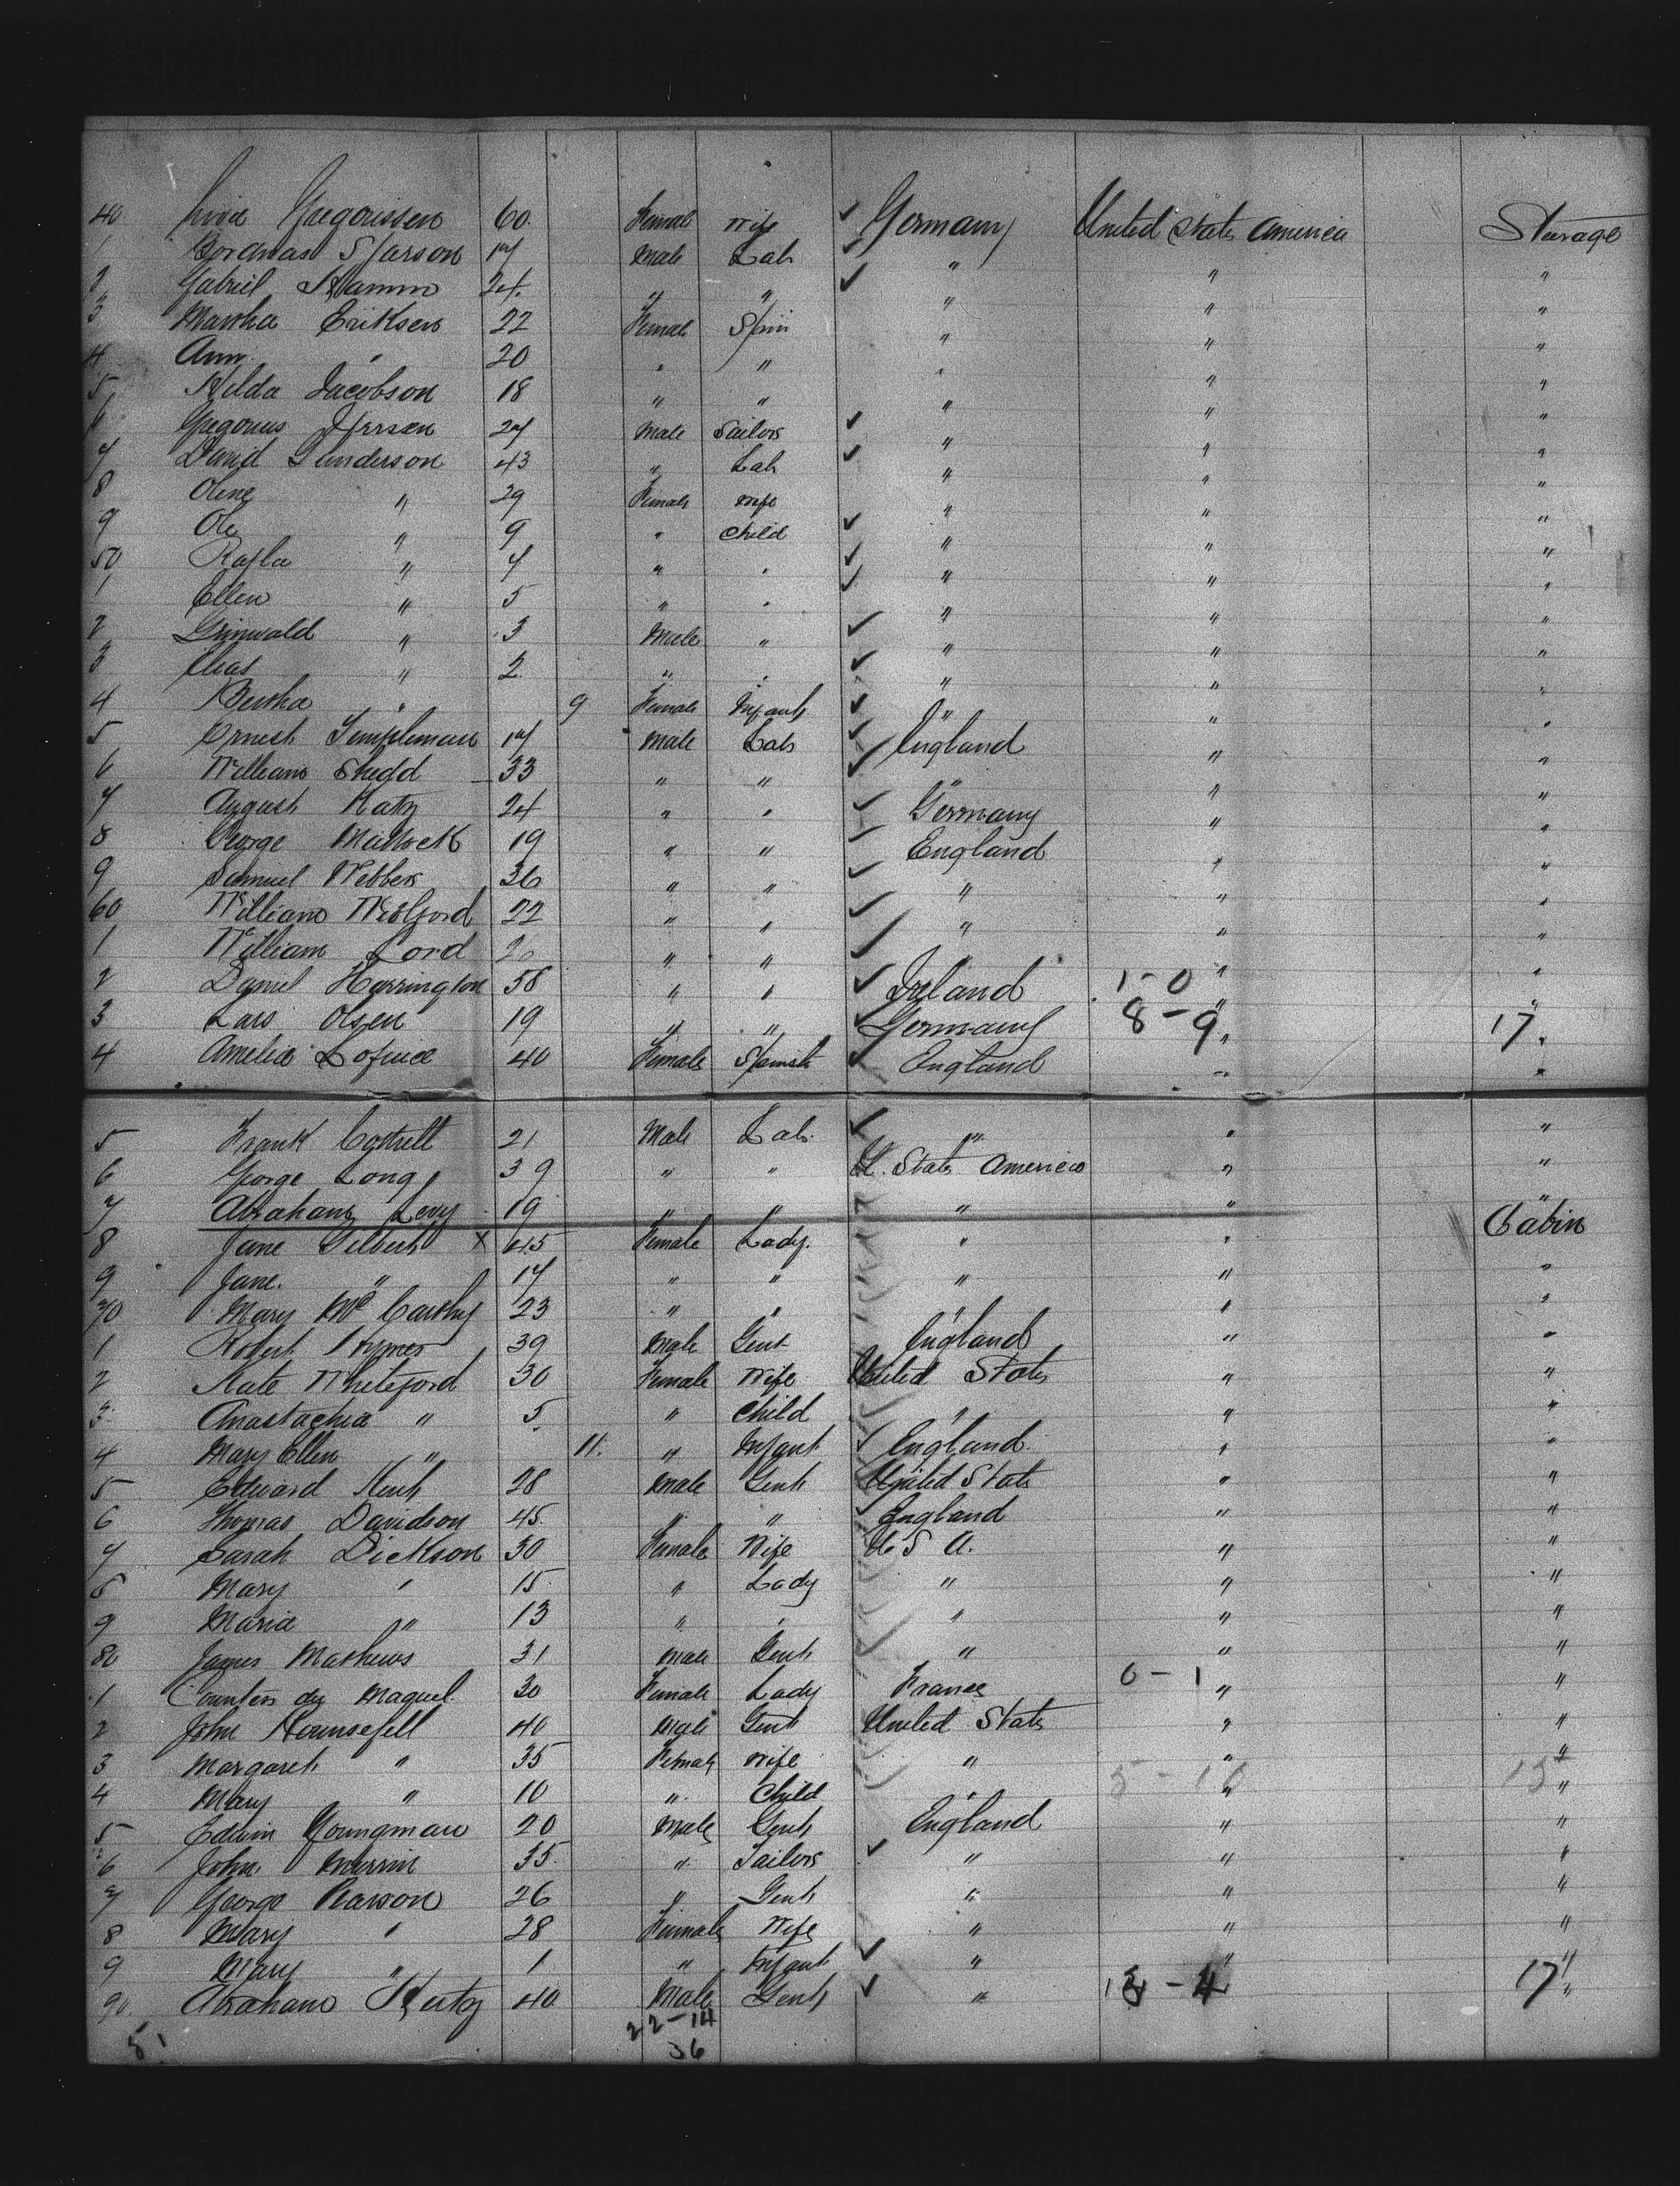 40 Gregorissen 60. Female Wife Germany United States America Steerage
1 17 Male Lab "
2 Gabriel 24. " " " " "
3 Martha Eriksen 22 Female Spin " " "
4 Ann " 20 " " " " "
5 Hilda Jacobson 18 " " " " "
6 Gregorius 27 Male Sailor " " "
7 David Gunderson 43 " Lab " " "
8 Olene " 29 Female Wife " " "
9 Ole " 9 " Child " " "
50 " 7 " " " " "
1 Ellen " 5 " " " " "
2 Grinwald " 3 Male " " " "
3 " 2 " " " " "
4 Bertha " 9 Female Infant " " "
5 Ernest Templeman 17 Male Lab England " "
6 William Shedd 33 " " " " "
7 August Katz 24 " " Germany " "
8 George 19 " " England " "
9 Samuel Webber 36 " " " " "
60 William 22 " " " " "
1 William Lord 26 " " " " "
2 Daniel Harrington 58 " " Ireland 1-0 " "
3 Lars Olsen 19 " " Germany 8-9 " 17 "
4 Amelia 40 Female Spinster England " "
5 Frank Cottrell 21 Male Lab. " " "
6 George Long 39 " " U. States America " "
7 Abraham Levy 19 " " " " "
8 Jane Gilbert X 45 Female Lady. " " Cabin
9 Jane. " 17 " " " " "
70 Mary McCarthy 23 " " " " "
1 Robert 39 Male Gent England " "
2 Kate Whiteford 30 Female Wife United States " "
3 Anastachia " 5 " Child " " "
4 Mary Ellen " 11. " Infant England " "
5 Edward Kent 28 Male Gent United States " "
6 Thomas Davidson 45. " " England " "
7 Sarah Dickson 30 Female Wife U S A. " "
8 Mary " 15 " Lady " " "
9 Maria " 13 " " " " "
80 James Mathews 31 Male Gent " " "
1 Countess de Maquel 30 Female Lady France 0-1 " "
2 John Rounsefell 40 Male Gent United States " "
3 Margaret " 35 Female Wife " " "
4 Mary " 10 " Child " " "
5 Edwin Youngman 20 Male Gent England " "
6 John 35. " Sailor " " "
7 George Pearson 26 " Gent " " "
8 Mary " 28 Female Wife " " "
9 Mary " 1 " Infant " " "
90. Abraham 40. Male Gent " 17 "
22-14
36